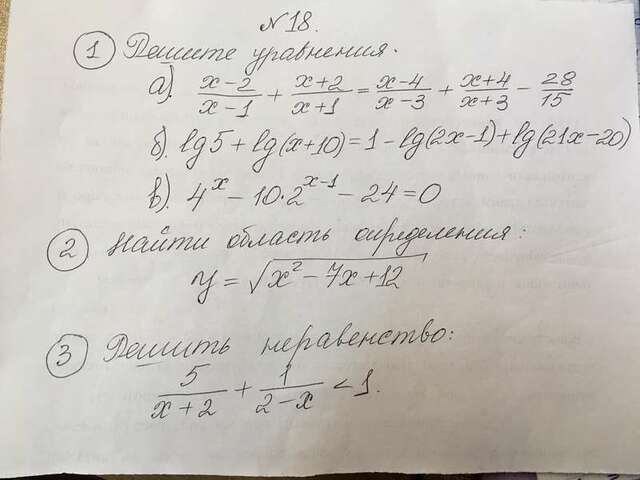 N18.
① Решите уравнения.
а). \frac{x-2}{x-1} + \frac{x+2}{x+1} = \frac{x-4}{x-3} + \frac{x+4}{x+3} - \frac{28}{15}
б). lg5 + lg(x+10) = 1 - lg(2x-1) + lg(21x-20)
в). 4^x - 10·2^{x-1} - 24 = 0
② Найти область определения:
y = \sqrt{x^2 - 7x + 12}
③ Решить неравенство:
\frac{5}{x+2} + \frac{1}{2-x} < 1.